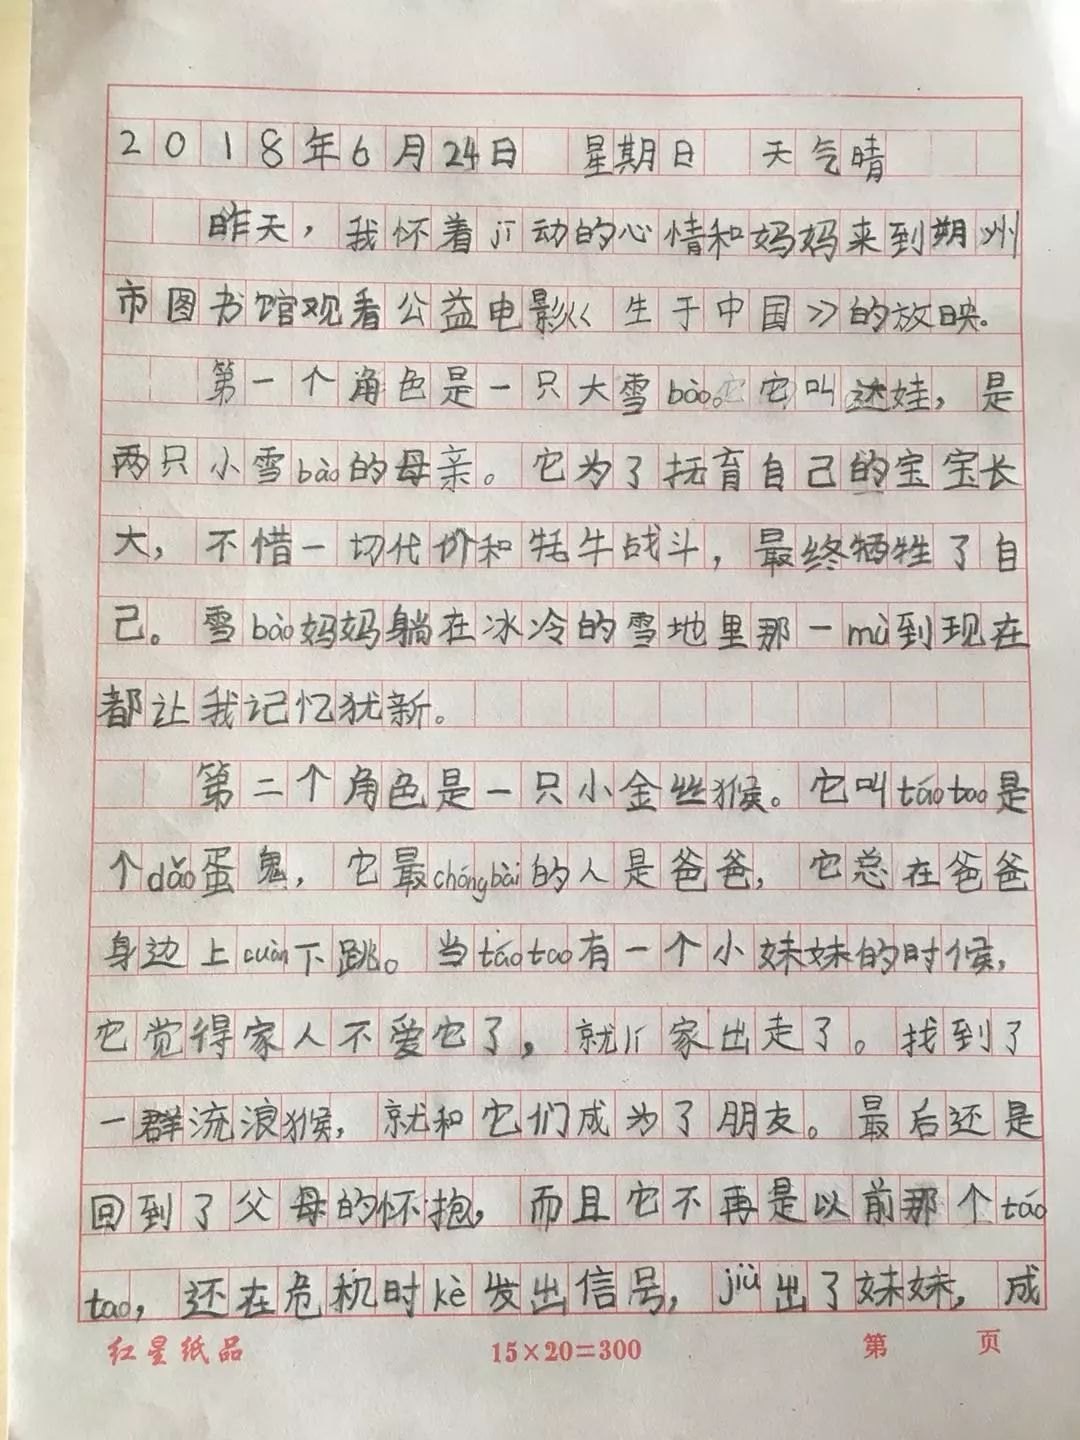 2018年6月24日 星期日 天气晴
昨天，我怀着jī动的心情和妈妈来到朔州
市图书馆观看公益电影《生于中国》的放映.
第一个角色是一只大雪bào。它叫达娃，是
两只小雪bào的母亲。它为了抚育自己的宝宝长
大，不惜一切代价和牦牛战斗，最终牺牲了自
己。雪bào妈妈躺在冰冷的雪地里那一mù到现在
都让我记忆犹新。
第二个角色是一只小金丝猴。它叫táotao是
个dǎo蛋鬼，它最chóngbài的人是爸爸，它总在爸爸
身边上cuàn下跳。当táotao有一个小妹妹的时候，
它觉得家人不爱它了，就lí家出走了。找到了
一群流浪猴，就和它们成为了朋友。最后还是
回到了父母的怀抱，而且它不再是以前那个táo
tao，还在危机时kè发出信号，jiù出了妹妹，成
红星纸品 15×20=300 第 页